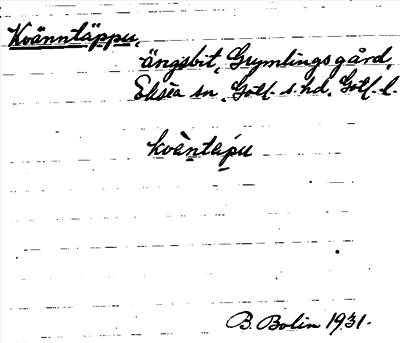 Kvänntäppu,
ängsbit, Grymlings gård,
Eksta sn, Gotl. s. hd, Gotl. l.
kvàntápu
B. Bolin 1931.